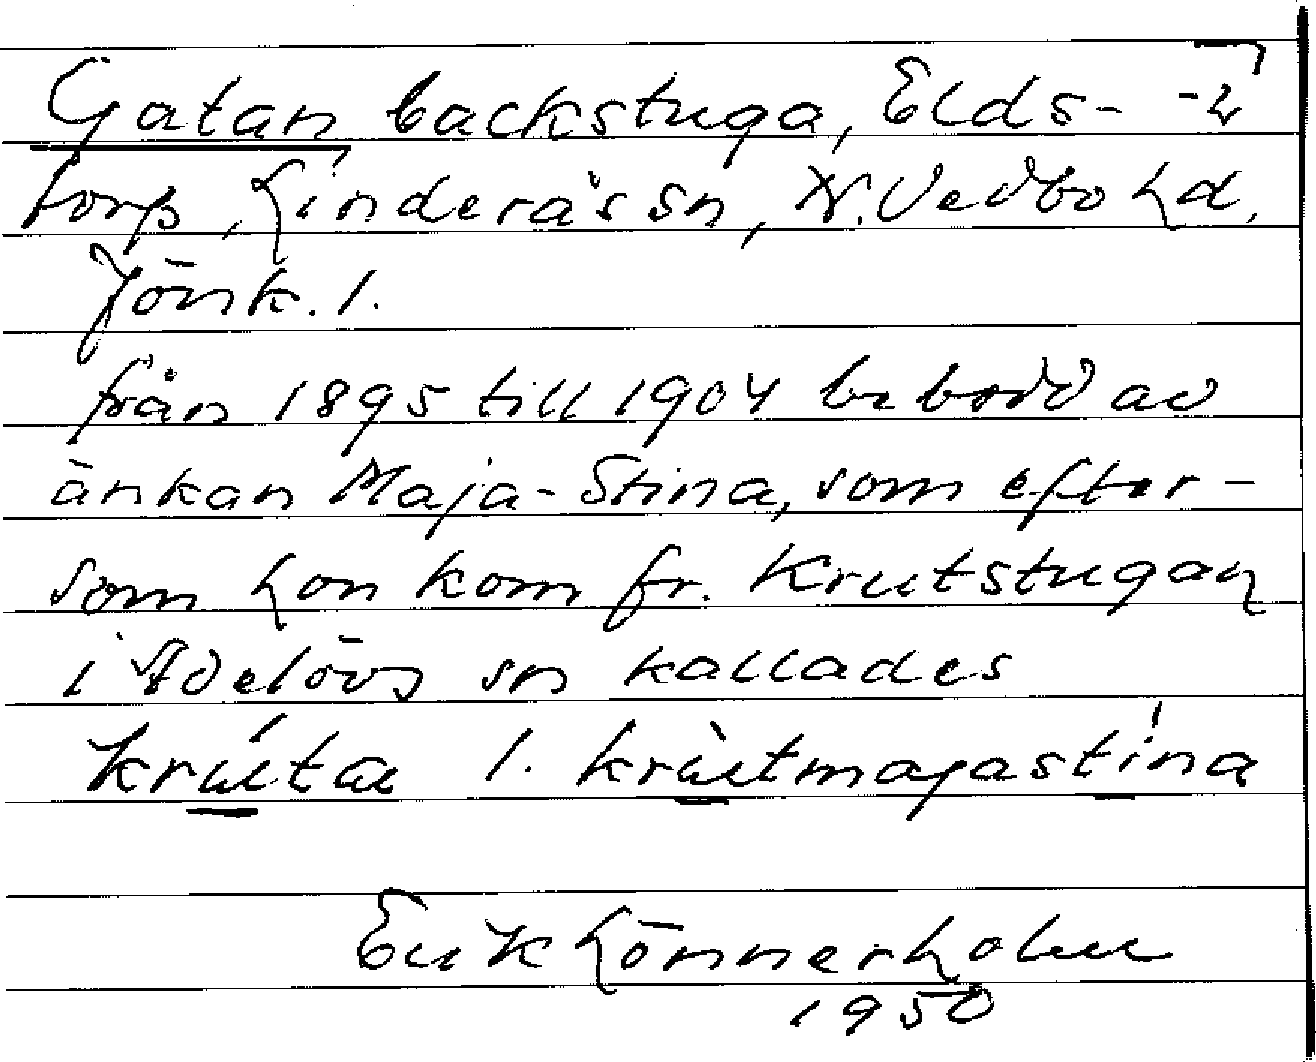 Gatan backstuga, Elds-
torp, Linderås sn, N. Vedbo hd.
Jönk. l.
från 1895 till 1904 bebodd av
änkan Maja-Stina, som efter-
som hon kom fr. Krutstugan
i Adelövs sn kallades
krúta l. krùtmajastína
Erik Lönnerholm
1950